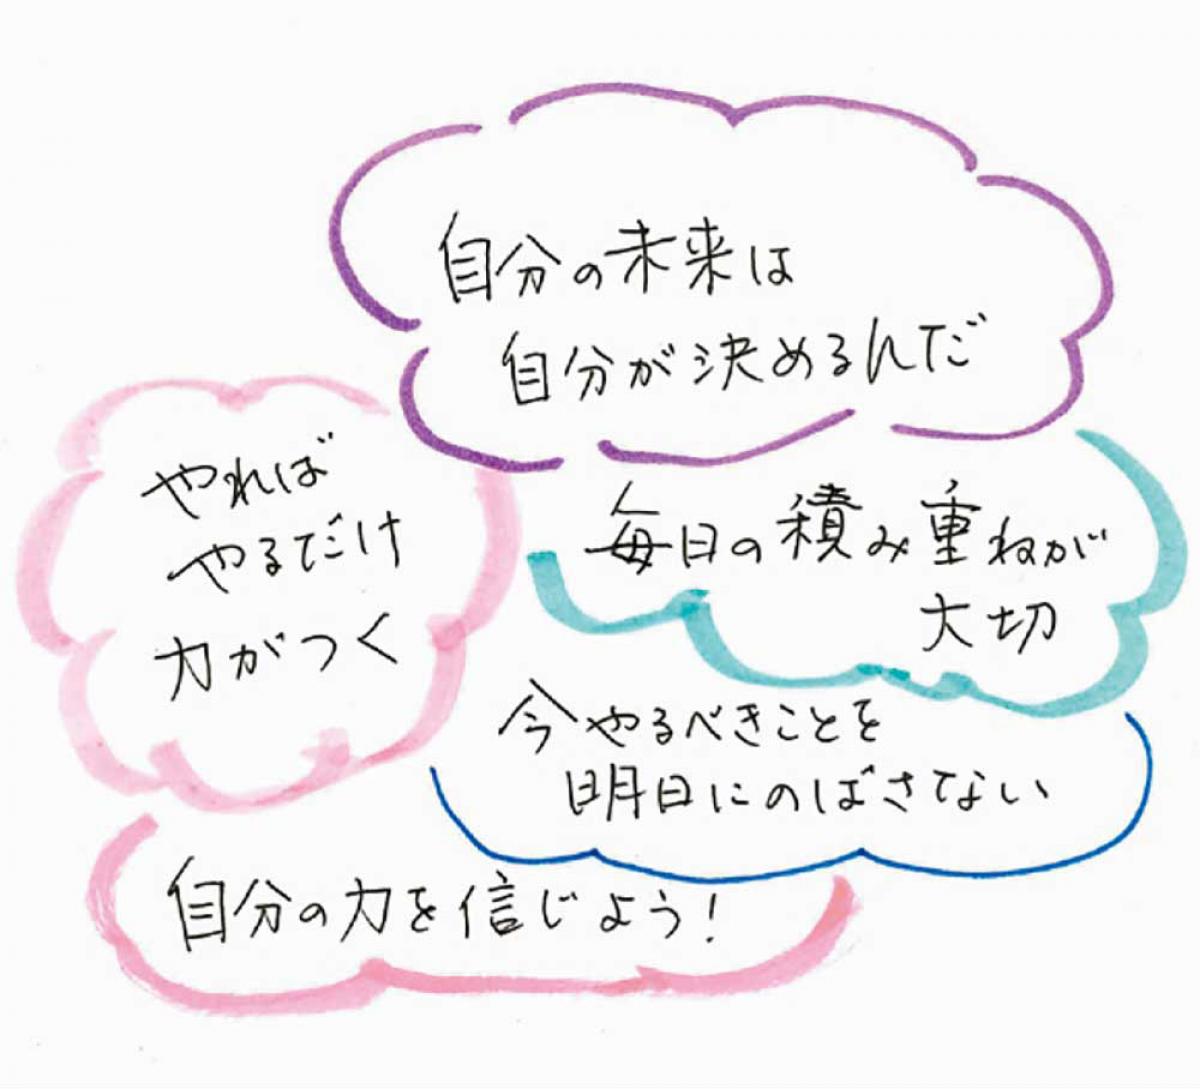 自分の未来は
自分が決めるんだ
やれば
やるだけ
力がつく
毎日の積み重ねが
大切
今やるべきことを
明日にのばさない
自分の力を信じよう!